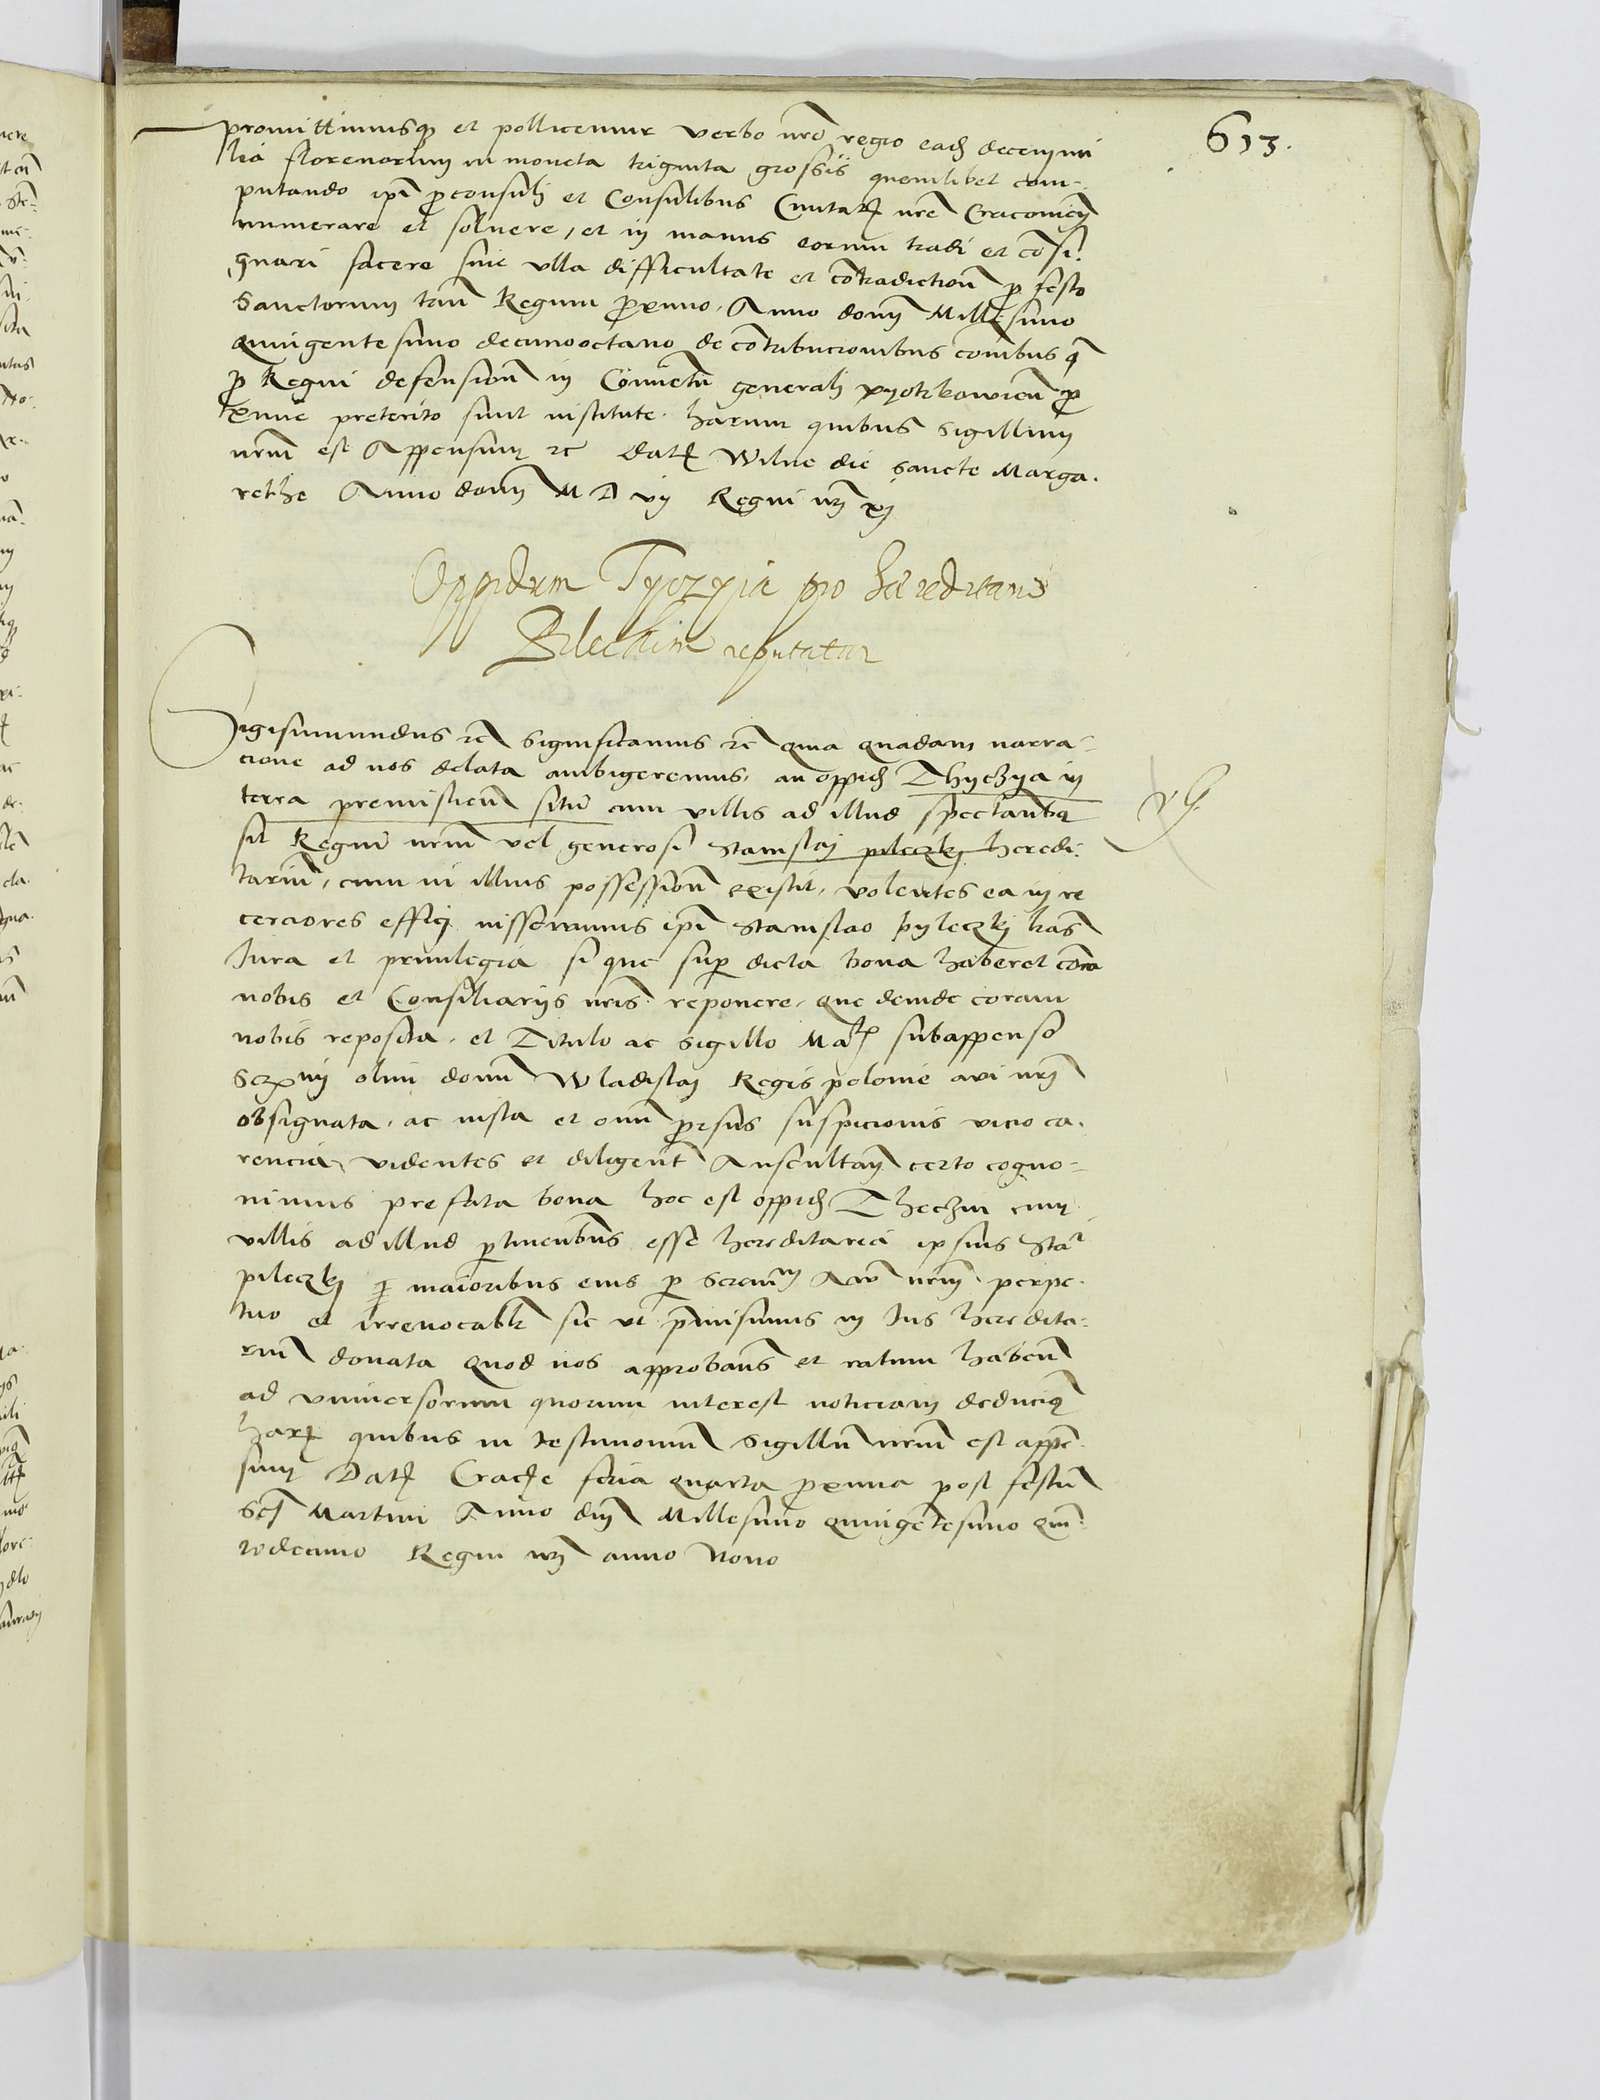 613.
promittimusq3 et pollicemur verbo nrō regio eadē decem mi
lia florenorum in moneta triginta grossis quemlibet com-
putando ipī proconsuli et Consulibus Ciuitatis nrē Cracouien
numerare et soluere, et in manus eorum tradi et cōsi-
gnari facere sine ulla difficultate et cōtradictiōn pro festo
Sanctorum triū Regum proximo. Anno domī Millesimo
quingentesimo decimooctauo de cōtribucionibus cōmibus q̄
pro Regni defensiōn in Cōuētū generali pyotrkowiēn pro
xime preterito sunt institute. harum quibus sigillum
nrūm est Appensum etc datū Wilne die sancte Marga-
rethe Anno domī M D vij Regni nrī xj
Oppidum Tyczyn pro haereditario
Pileckim reputatur
Sigismundus etc Significamus etc quia quadam narra-
cione ad nos delata ambigeremus, an oppidū Thyczyn in
terra premislien̄ sitū cum villis ad illud spectantibus
sit Regniū nrūm vel generosi Stanislaj pileczkj heredi-
tariū, cum in illius possessiōn existit, volentes ea in re
cerciores effici iusseramus ipī Stanislao pyleczkj lrās
Iura et priuilegia si que super dicta bona haberet corā
nobis et Consiliarijs nrīs reponere, que deinde coram
nobis reposita, et Titulo ac sigillo Matis subappenso
Sermi olim domī Wladislaj Regis polonie aui nrī
obsignata, ac iusta et omī prorsus suspicionis vicio ca-
rencia, videntes et diligent Auscultatī certo cogno-
uimus prefata bona hoc est oppidū Theczin cum
villis ad illud pertinentibus esse hereditaria ipsius Stā
pileczkj maioribus eius per Serenm Auū nrūm perpe-
tuo et irreuocabilr sic ut premisimus in Ius heredita-
riū donata quod nos approbans et ratum habeñ
ad uniuersorum quorum interest noticiam deducimus
harū quibus in testimoniū Sigillū nrūm est appen-
sum Datū Cracie feria quarta proxima post festū
Sctī Martini Anno dnī Millesimo quingētesimo quin-
todecimo Regni nrī anno Nono